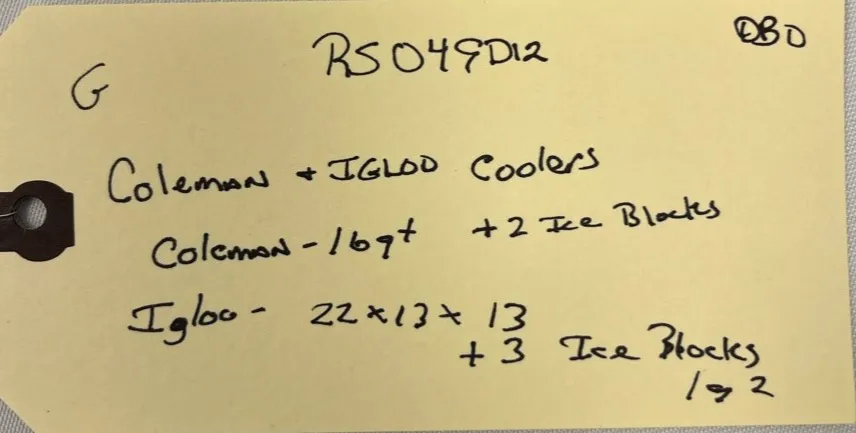 DBD
RS049D12
G
Coleman + IGLOO Coolers
Coleman - 16qt + 2 Ice Blocks
Igloo - 22 x 13 x 13
+ 3 Ice Blocks